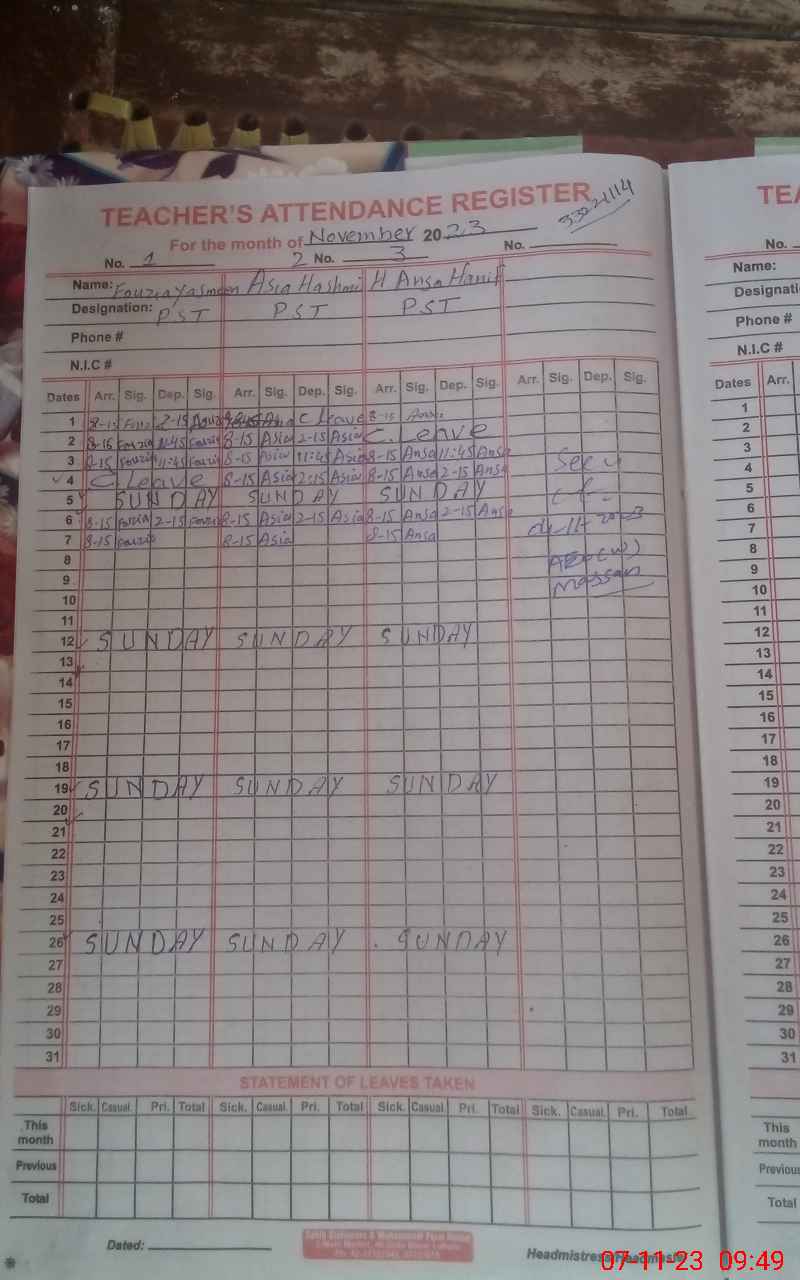 TEACHER'S ATTENDANCE REGISTER
33221114
For the month of November 2023
No. 1 2 No. 3 No.
Name: Fouzia Yasmeen Asia Hashmi H Ansa Hanif
Designation: PST PST PST
Phone #
N.I.C #
Dates Arr. Sig. Dep. Sig. Arr. Sig. Dep. Sig. Arr. Sig. Dep. Sig. Arr. Sig. Dep. Sig.
1 8-15 2-15 C Leave 8-15 Ansa
2 8-15 Fouzia 11:45 Fouzia 8-15 Asia 2-15 Asia C. Leave
3 8-15 Fouzia 11:45 Fouzia 8-15 Asia 11:45 Asia 8-15 Ansa 11:45 Ansa
4 C Leave 8-15 Asia 2:15 Asia 8-15 Ansa 2-15 Ansa Seen
5 SUNDAY SUNDAY SUNDAY
6 8-15 Fouzia 2-15 Fouzia 8-15 Asia 2-15 Asia 8-15 Ansa 2-15 Ansa
7 8-15 Fouzia 8-15 Asia 8-15 Ansa
8 AEO(W)
9
10
11
12 SUNDAY SUNDAY SUNDAY
13
14
15
16
17
18
19 SUNDAY SUNDAY SUNDAY
20
21
22
23
24
25
26 SUNDAY SUNDAY SUNDAY
27
28
29
30
31
STATEMENT OF LEAVES TAKEN
Sick. Casual. Pri. Total Sick. Casual. Pri. Total Sick. Casual. Pri. Total Sick. Casual. Pri. Total
This month
Previous
Total
Dated:
Headmistress/Headmaster
07-11-23 09:49
TEA
No.
Name:
Designati
Phone #
N.I.C #
Dates Arr.
1
2
3
4
5
6
7
8
9
10
11
12
13
14
15
16
17
18
19
20
21
22
23
24
25
26
27
28
29
30
31
This month
Previous
Total